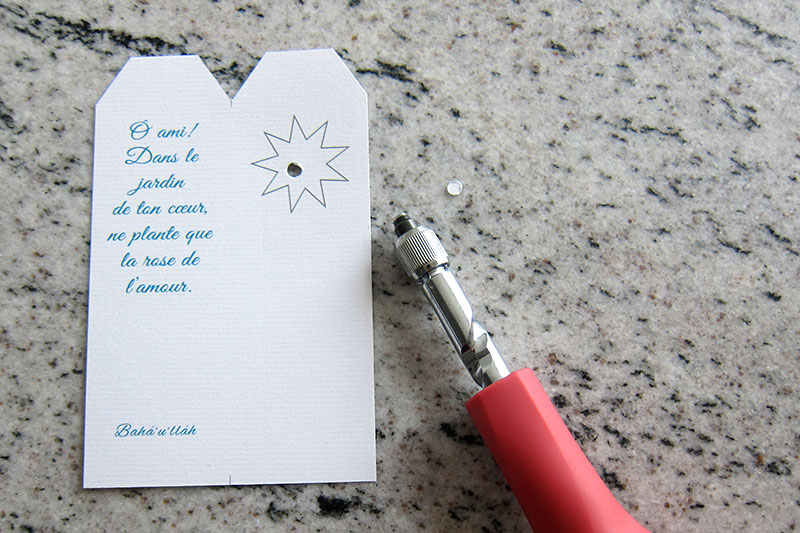 Ô ami!
Dans le
jardin
de ton cœur,
ne plante que
la rose de
l'amour.
Bahá'u'lláh